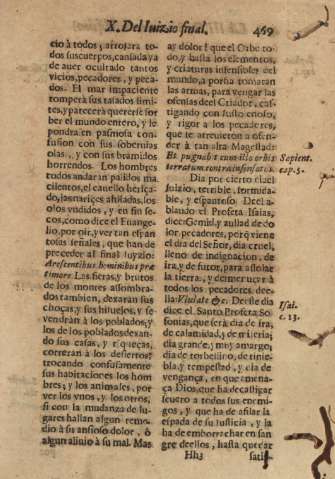 X. Del Iuizio final. 469
cio à todos; arrojara to-
dos sus cuerpos, cansada ya
de auer ocultado tantos
vicios, pecadores, y peca-
dos. El mar impaciente
romperà sus tassados limi-
tes, y parecerà querer se sor-
ber el mundo entero, y le
pondra en pasmosa con-
fusion con sus soberuias
olas, y con sus bramidos
horrendos. Los hombres
todos andaran palidos ma-
cilentos, el cauello heriça-
do, las narices afiladas, los
ojos vndidos, y en fin se-
cos, como dice el Euange-
lio, por oir, y ver tan espan
tosas señales, que han de
preceder al final Iuyzio:
Arescentibus hominibus præ
timore. Las fieras, y brutos
de los montes assombra-
dos tambien, dexaran sus
choças, y sus hijuelos, y se
vendràn à los poblados, y
los de los poblados dexan-
do sus casas, y riqueças,
correràn à los desiertos;
trocando confusamente
sus habitaciones los hom
bres; y los animales, por
ver los vnos, y los otros,
si con la mudanza de lu-
gares hallan algun reme-
dio à su ansioso dolor, ò
algun aliuio à su mal. Mas
ay dolor! que el Orbe to-
do, y hasta los elementos,
y criaturas insensibles del
mundo, a porfia tomaran
las armas, para vengar las
ofensas de el Criador, cas-
tigando con justo enojo,
y rigor a los pecadores,
que se atreuieron a ofen-
der à tan alta Magestad:
Et pugnabit cum illo orbis
terrarum contra insensatos.
Sapient.
cap. 5.
Dia por cierto el del
Iuizio, terrible, formida-
ble, y espantoso. De el a-
blando el Profeta Isaias,
dice: Gemid, y aullad de do
lor pecadores, porq̃ viene
el dia del Señor, dia cruel,
lleno de indignacion, de
ira, y de furor, para assolar
la tierra, y desmenuçar à
todos los pecadores de e-
lla: Vlulate &c. De este dia
dice el Santo Profeta So-
Isai.
c. 13.
fonias, que serà dia de ira,
de calamidad, y de miseria;
dia grande, y muy amargo,
dia de torbellino, de tinie-
bla, y tempestad, y dia de
vengança, en que amena-
ça Dios, que ha de castigar
seuero a todos sus enemi-
gos, y que ha de afilar la
espada de su justicia, y la
ha de emborrachar en san
gre de ellos, hasta quedar
Hh3 satis-